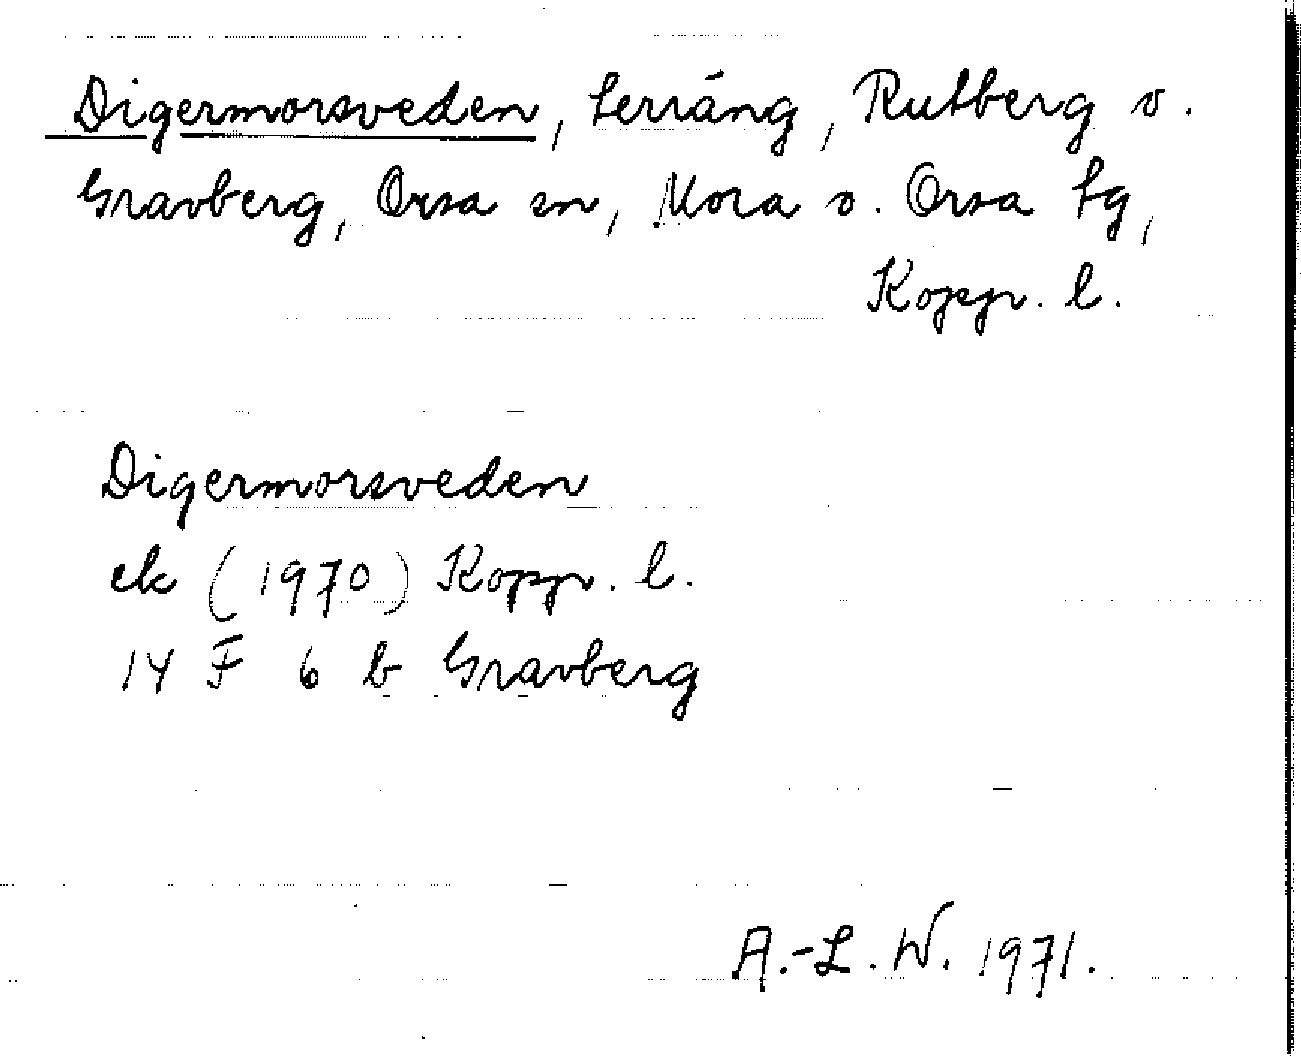 Digermorsveden, terräng, Rutberg o.
Gravberg, Orsa sn, Mora o. Orsa tg,
Koppr. l.
Digermorsveden
ek (1970) Koppr. l.
14 F 6 b Gravberg
A.-L. W. 1971.